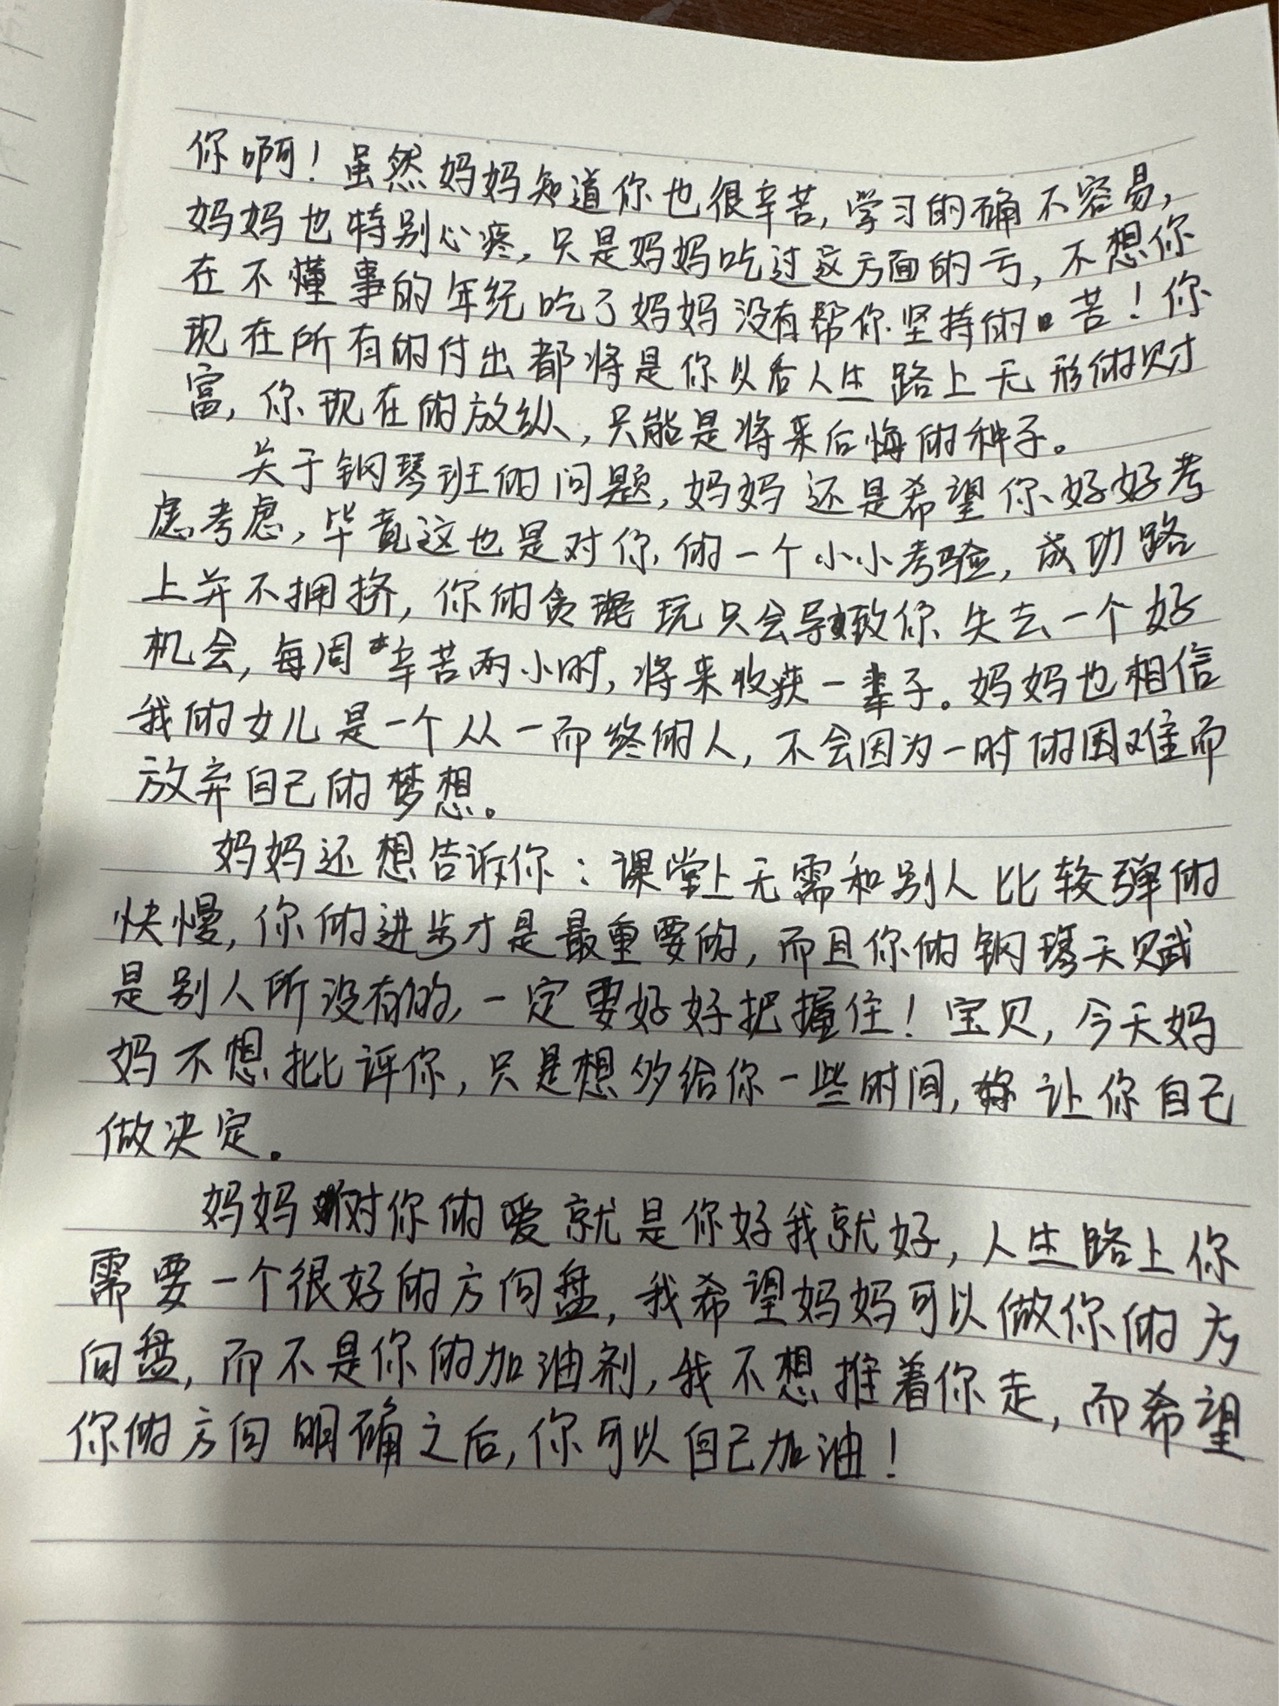 你啊！虽然妈妈知道你也很辛苦，学习的确不容易，
妈妈也特别心疼，只是妈妈吃过这方面的亏，不想你
在不懂事的年纪吃了妈妈没有帮你坚持的苦！你
现在所有的付出都将是你以后人生路上无形的财
富，你现在的放纵，只能是将来后悔的种子。
关于钢琴班的问题，妈妈还是希望你好好考
虑考虑，毕竟这也是对你的一个小小考验，成功路
上并不拥挤，你的贪玩只会导致你失去一个好
机会，每周辛苦两小时，将来收获一辈子。妈妈也相信
我的女儿是一个从一而终的人，不会因为一时的困难而
放弃自己的梦想。
妈妈还想告诉你：课堂上无需和别人比较弹的
快慢，你的进步才是最重要的，而且你的钢琴天赋
是别人所没有的，一定要好好把握住！宝贝，今天妈
妈不想批评你，只是想多给你一些时间，让你自己
做决定。
妈妈对你的爱就是你好我就好，人生路上你
需要一个很好的方向盘，我希望妈妈可以做你的方
向盘，而不是你的加油剂，我不想推着你走，而希望
你的方向明确之后，你可以自己加油！